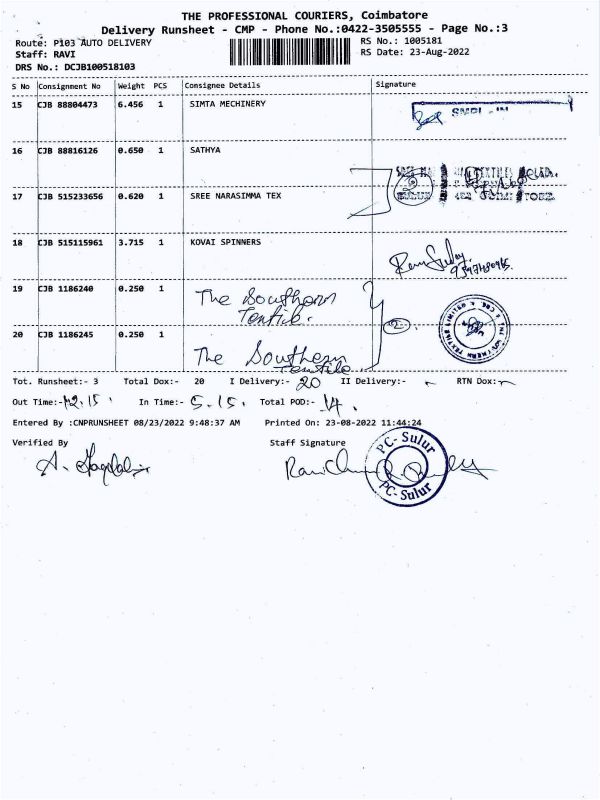 THE PROFESSIONAL COURIERS, Coimbatore
Delivery Runsheet - CMP - Phone No.:0422-3505555 - Page No.:3
Route: P103 AUTO DELIVERY
RS No.: 1005181
Staff: RAVI
RS Date: 23-Aug-2022
DRS No.: DCJB100518103
S No Consignment No Weight PCS Consignee Details Signature
15 CJB 88804473 6.456 1 SIMTA MECHINERY
16 CJB 88816126 0.650 1 SATHYA
17 CJB 515233656 0.620 1 SREE NARASIMMA TEX
18 CJB 515115961 3.715 1 KOVAI SPINNERS
19 CJB 1186240 0.250 1 The Southern
Textile.
2
20 CJB 1186245 0.250 1 The Southern
Textile.
Tot. Runsheet:- 3 Total Dox:- 20 I Delivery:- 20 II Delivery:- RTN Dox:-
Out Time:- 12.15 In Time:- 5.15. Total POD:- 14.
Entered By :CNPRUNSHEET 08/23/2022 9:48:37 AM Printed On: 23-08-2022 11:44:24
Verified By Staff Signature
PC- Sulur
PC- Sulur